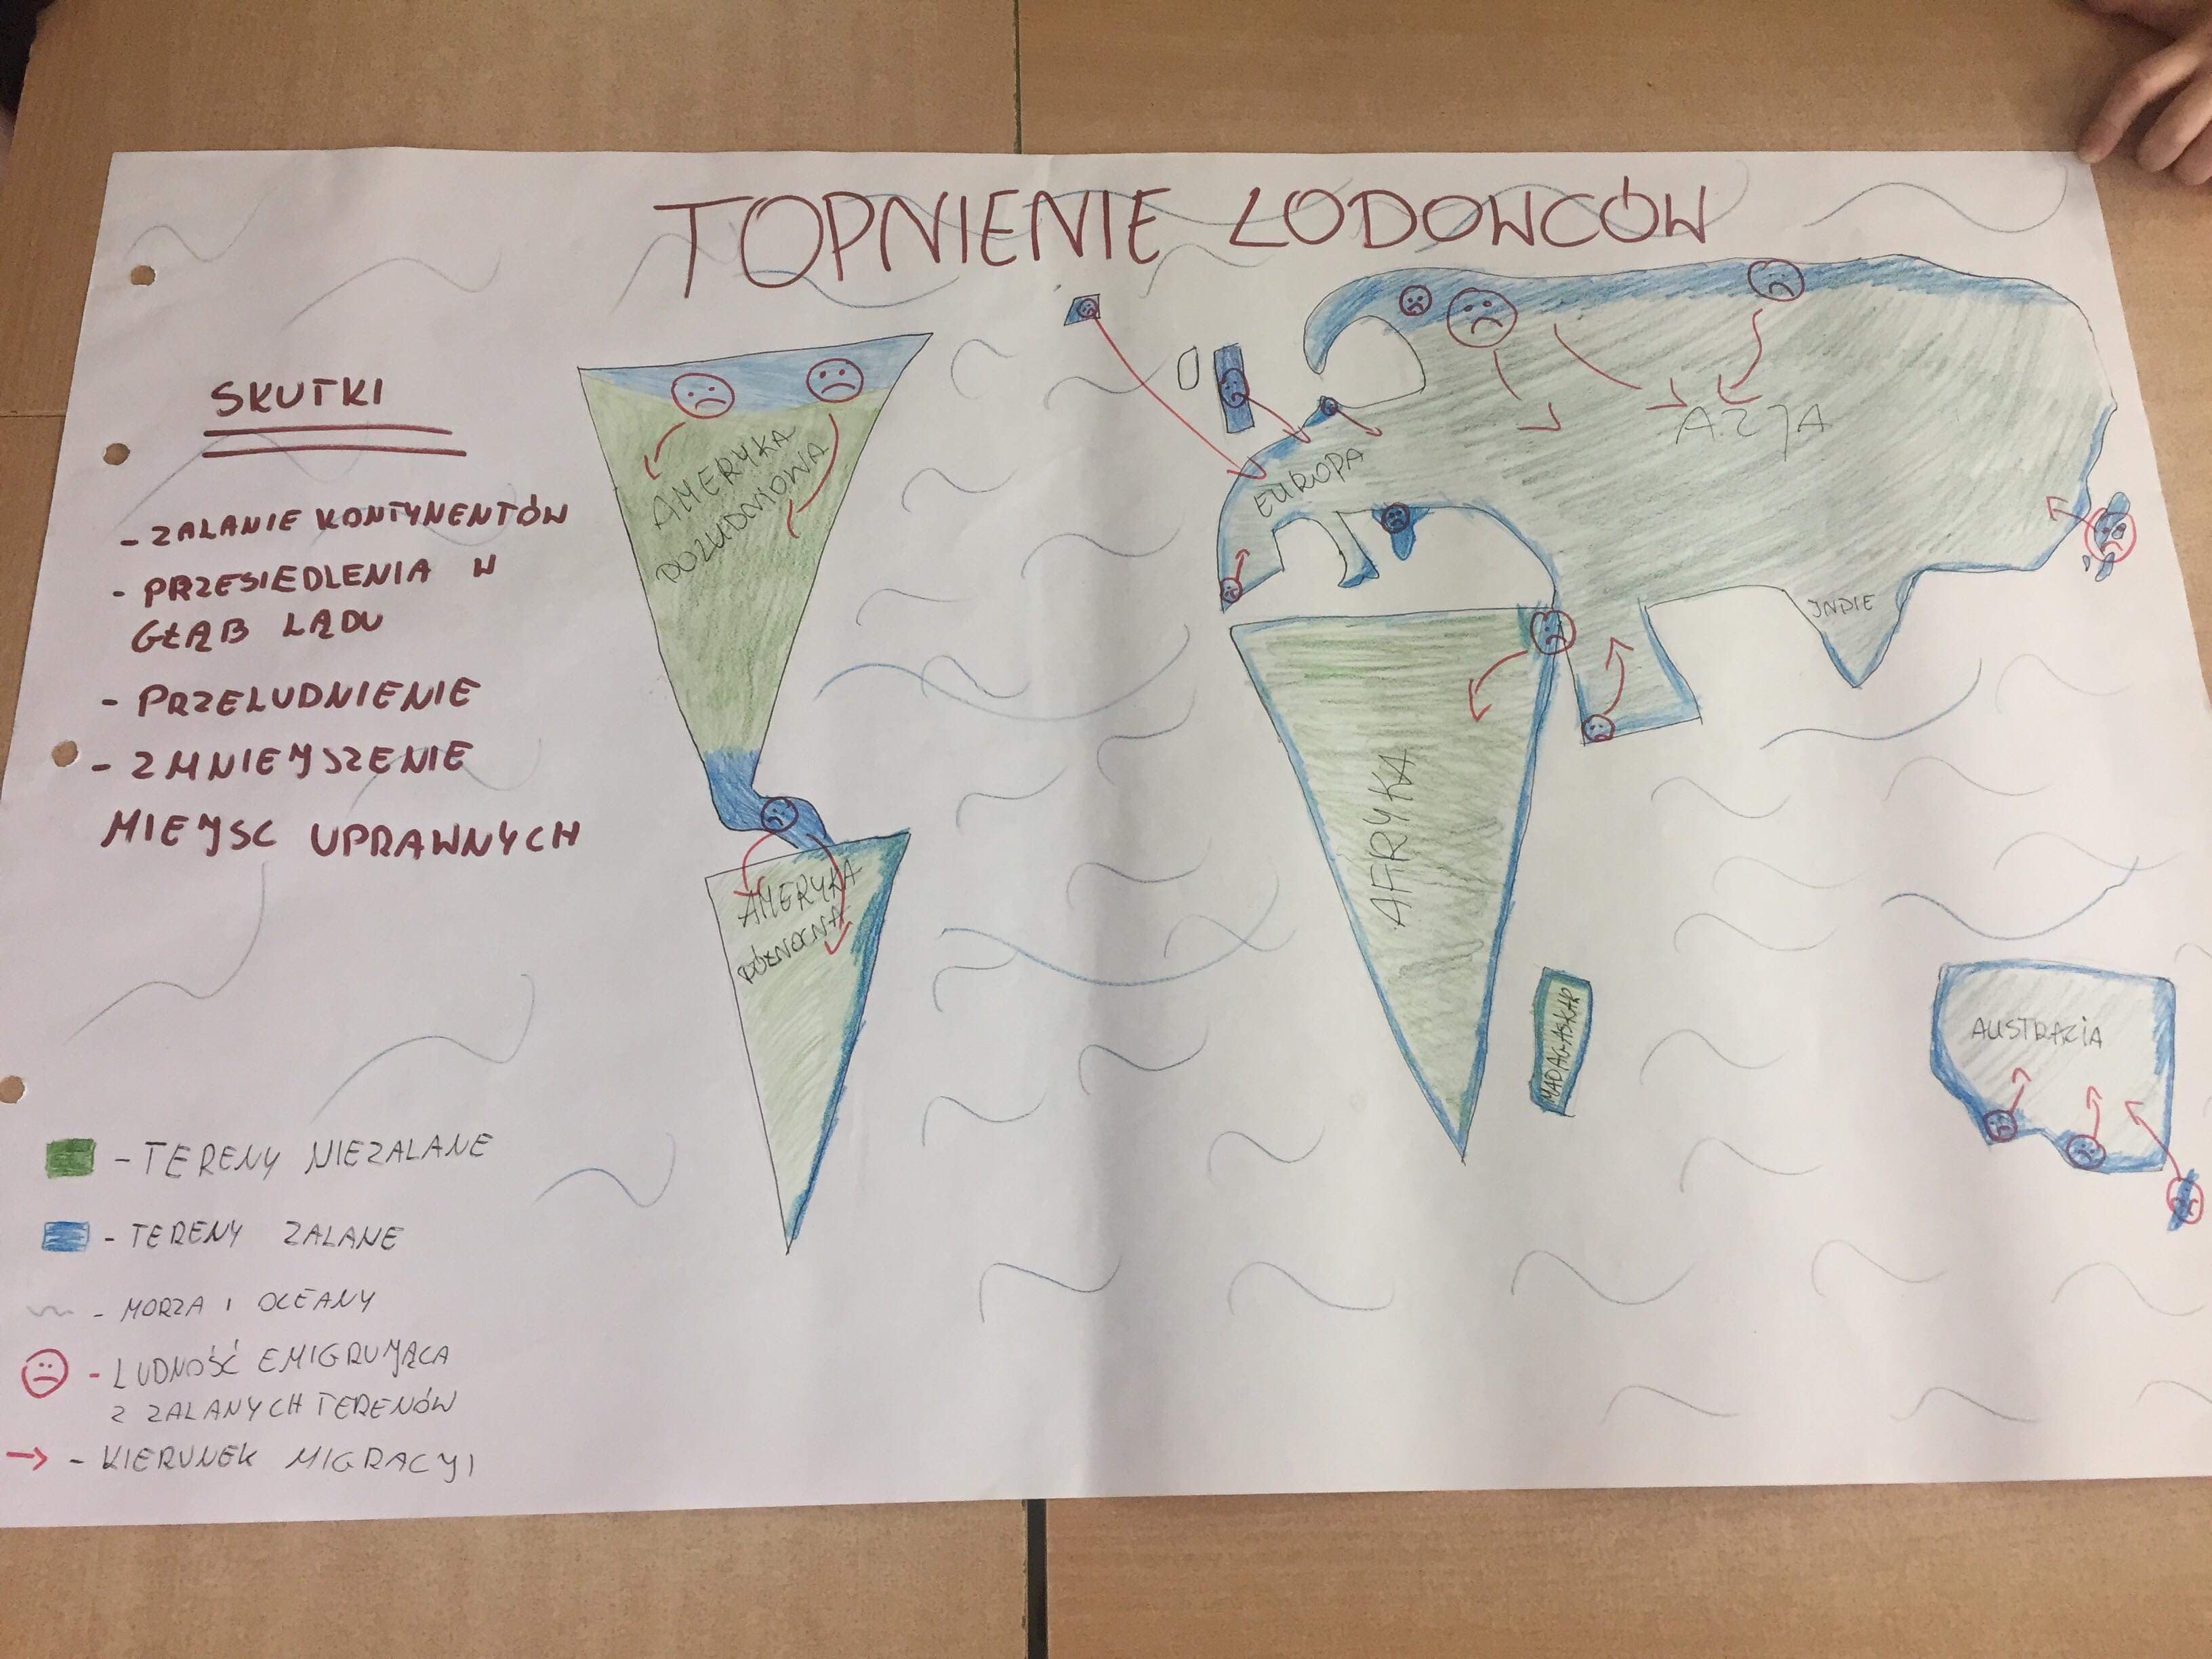 TOPNIENIE LODOWCÓW
SKUTKI
- ZALANIE KONTYNENTÓW
- PRZESIEDLENIA W
GŁĄB LĄDU
- PRZELUDNIENIE
- ZMNIEJSZENIE
MIEJSC UPRAWNYCH
AMERYKA
POŁUDNIOWA
AMERYKA
PÓŁNOCNA
EUROPA
AZJA
INDIE
AFRYKA
MADAGASKAR
AUSTRALIA
- TERENY NIEZALANE
- TERENY ZALANE
- MORZA I OCEANY
- LUDNOŚĆ EMIGRUJĄCA
Z ZALANYCH TERENÓW
- KIERUNEK MIGRACJI